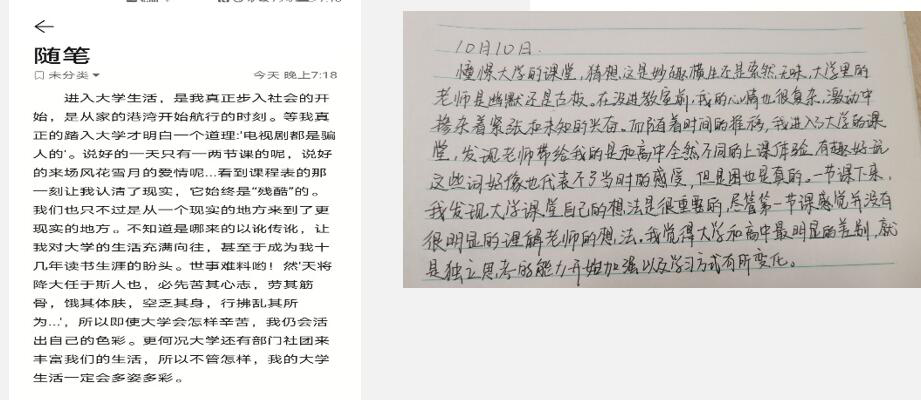 随笔
未分类
今天 晚上7:18
进入大学生活，是我真正步入社会的开
始，是从家的港湾开始航行的时刻。等我真
正的踏入大学才明白一个道理:'电视剧都是骗
人的'。说好的一天只有一两节课的呢，说好
的来场风花雪月的爱情呢...看到课程表的那
一刻让我认清了现实，它始终是“残酷”的。
我们也只不过是从一个现实的地方来到了更
现实的地方。不知道是哪来的以讹传讹，让
我对大学的生活充满向往，甚至于成为我十
几年读书生涯的盼头。世事难料哟！然'天将
降大任于斯人也，必先苦其心志，劳其筋
骨，饿其体肤，空乏其身，行拂乱其所
为...'，所以即使大学会怎样辛苦，我仍会活
出自己的色彩。更何况大学还有部门社团来
丰富我们的生活，所以不管怎样，我的大学
生活一定会多姿多彩。
10月10日.
憧憬大学的课堂，猜想这是妙趣横生还是索然无味，大学里的
老师是幽默还是古板。在没进教室前，我的心情也很复杂，激动中
掺杂着紧张和未知的兴奋。而随着时间的推移，我进入了大学的课
堂，发现老师带给我的是和高中全然不同的上课体验，有趣、好玩
这些词好像也代表不了当时的感受，但是困也是真的。一节课下来，
我发现大学课堂自己的想法是很重要的，尽管第一节课感觉并没有
很明显的理解老师的想法。我觉得大学和高中最明显的差别，就
是独立思考的能力开始加强以及学习方式有所变化。